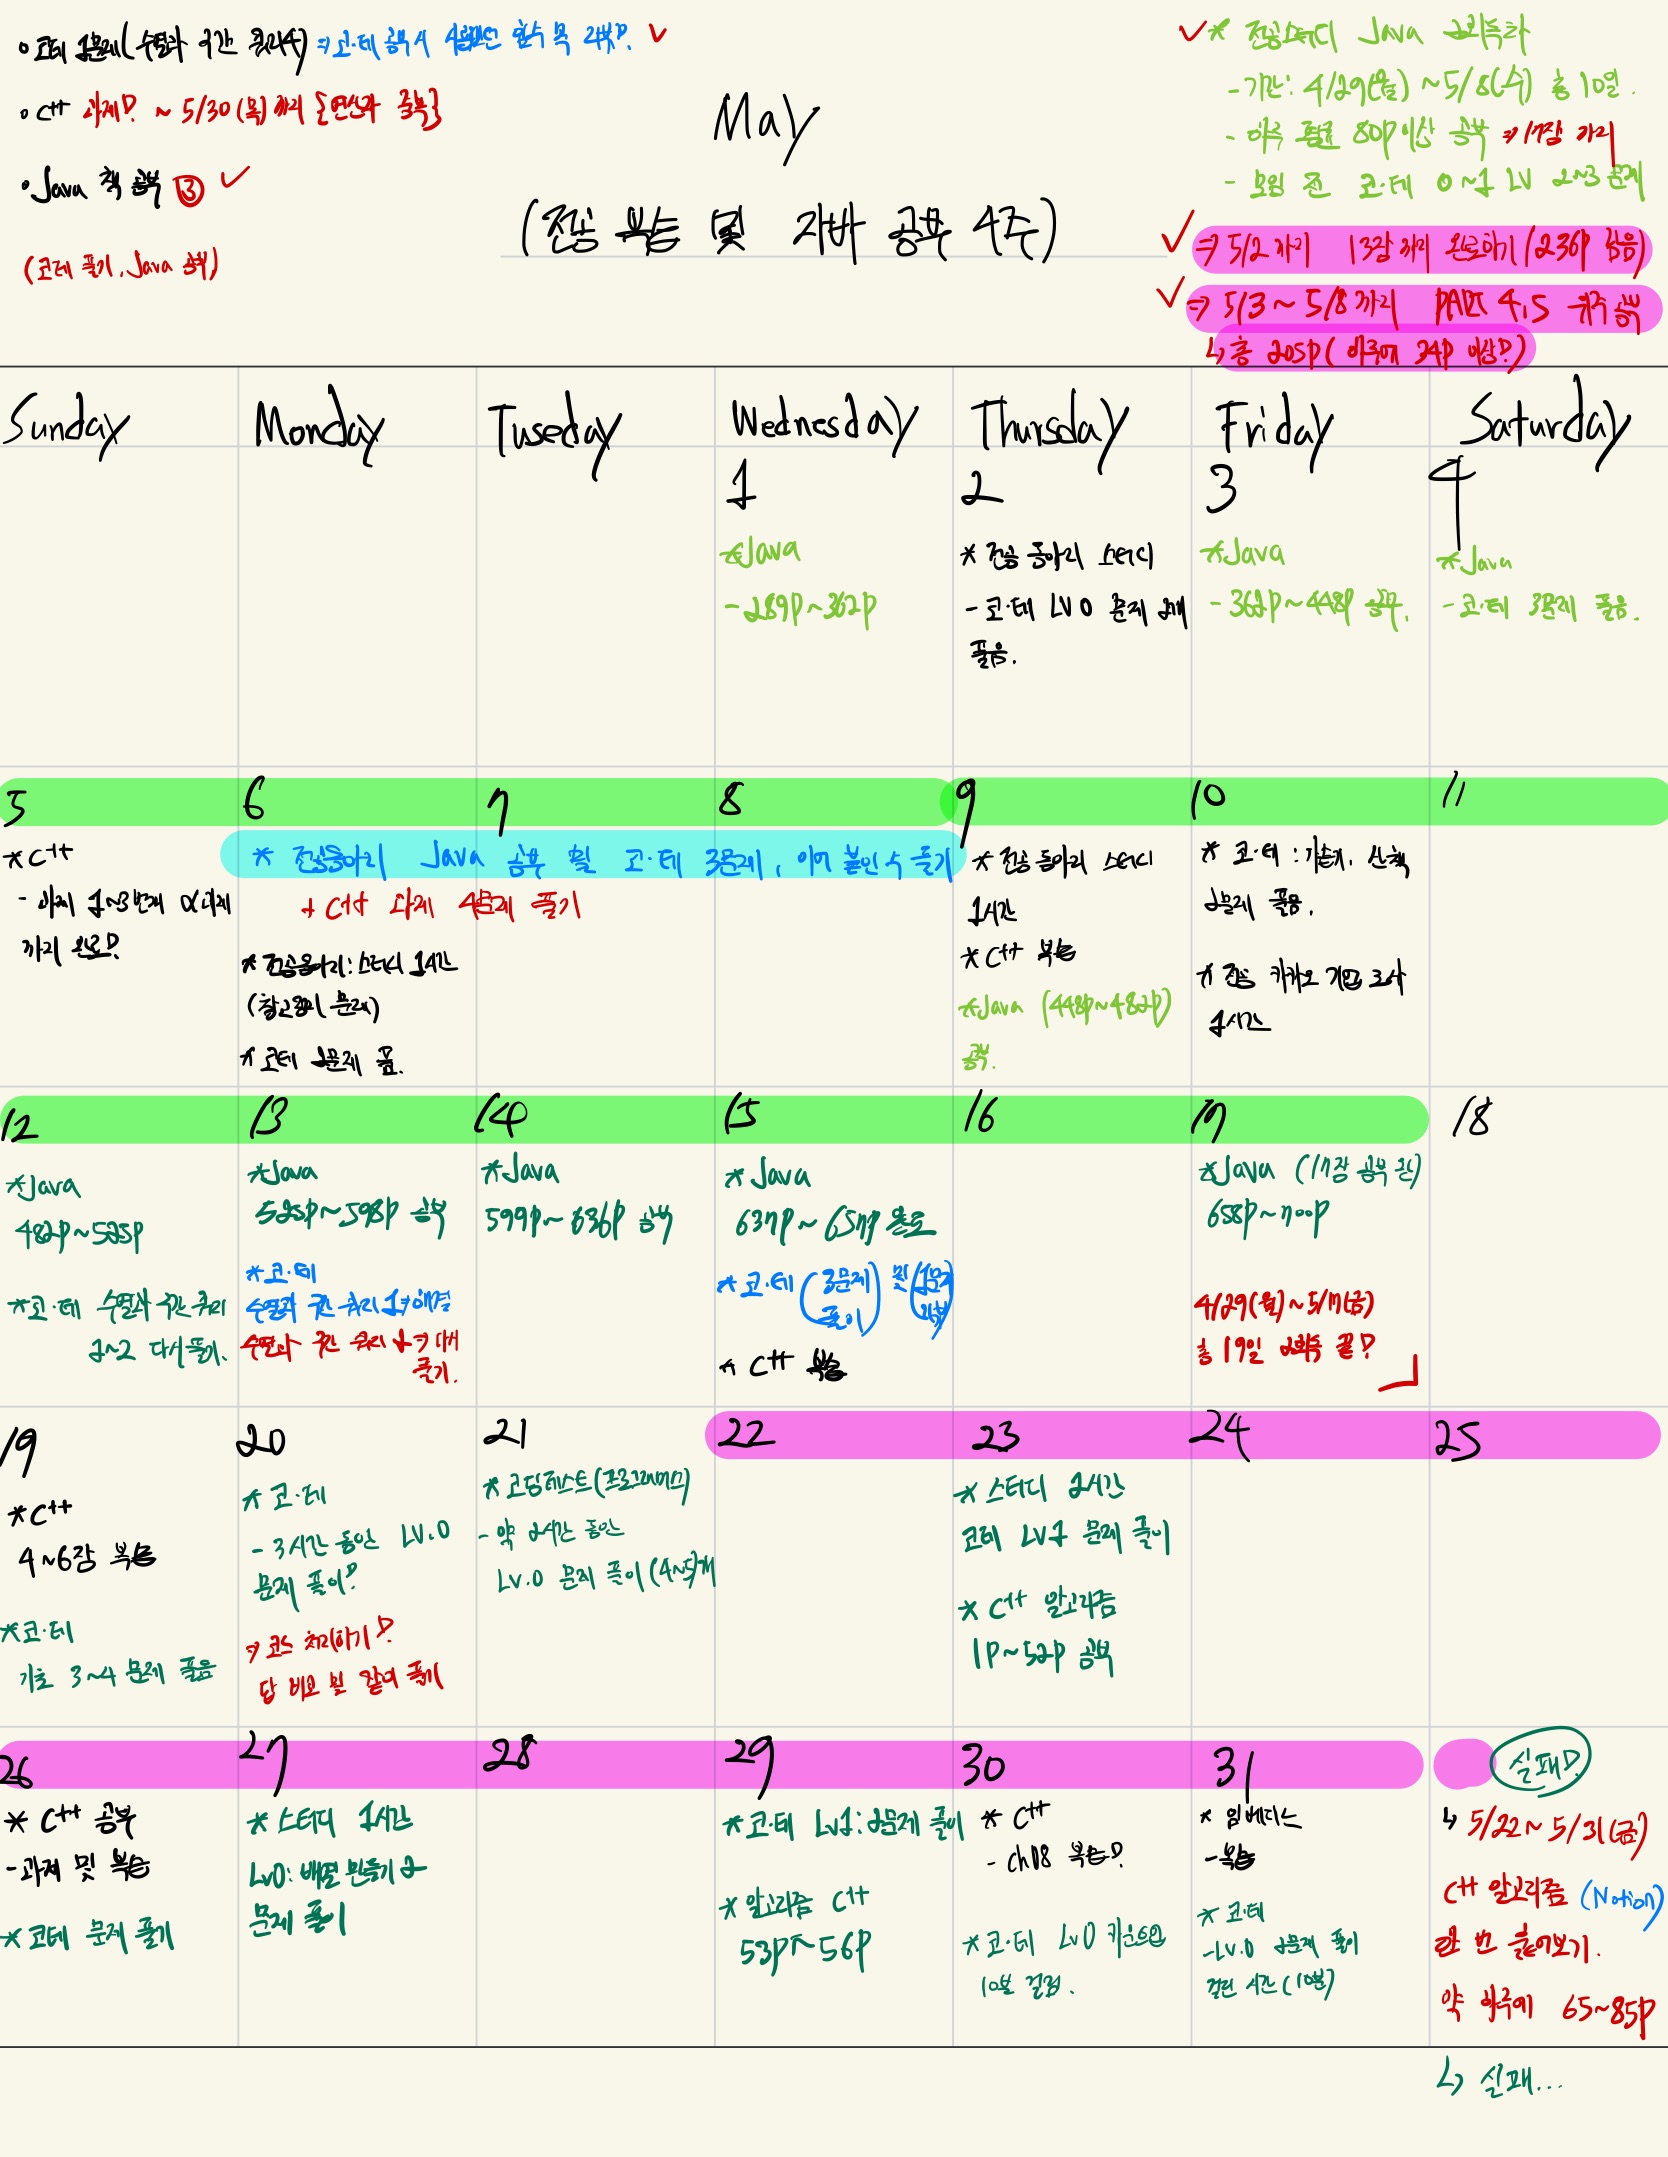 코테 1문제(수열과 구간 쿼리4) ⇒ 코·테 공부시
C++ 과제! ~ 5/30(목)까지
Java 책 공부 ③ ✓
(코테 풀기, Java 공부)
May
(전공 복습 및 자바 공부 4주)
✓ * 전공스터디 Java 2회독차
- 기간: 4/29(월) ~ 5/8(수) 총 10일.
- 하루 80p 이상 공부 ⇒ 17장 까지
- 모임 전 코·테 0~1 LV 2~3문제
✓ ⇒ 5/2까지 13장까지 완료하기 (236p 남음)
✓ ⇒ 5/3 ~ 5/8까지 PART 4, 5 위주 공부
↳ 총 205p (하루에 34p 이상!)
Sunday Monday Tuseday Wednesday Thursday Friday Saturday
1
*Java
- 289p~362p
2
* 전공 동아리 스터디
- 코·테 LV 0 문제 2개
풀음.
3
*Java
- 362p~448p 공부.
4
*Java
- 코·테 3문제 풀음.
5
*C++
- 과제 1~3번까지
까지 완료!
6
7
8
* 전공동아리 Java 공부 및 코·테 3문제, 이어 붙인 수 풀기
+ C++ 과제 4문제 풀기
* 전공동아리: 스터디 1시간
* 코테 2문제 품.
9
* 전공 동아리 스터디
1시간
* C++ 복습
*Java (448p~482p)
공부.
10
* 코·테 : 가습기, 산책
2문제 풀음.
* 전공 카카오 기업 조사
1시간
11
12
*Java
482p~525p
*코·테 수열과 구간 쿼리
2~2 다시 풀기.
13
*Java
525p~598p 공부
*코·테
수열과 구간 쿼리 1 ⇒ 해결
수열과 구간 쿼리 2 ⇒ 다시
풀기.
14
*Java
599p~636p 공부
15
* Java
637p~657p 완료
*코·테 (3문제 풀이) 및 (1문제
* C++ 복습
16
17
*Java (17장 공부 완)
658p~700p
4/29(월)~5/17(금)
총 19일 2회독 끝!
18
19
*C++
4~6장 복습
*코·테
기초 3~4 문제 풀음
20
* 코·테
- 3시간 동안 LV.0
문제 풀이!
⇒ 코스 처리하기!
21
* 코딩테스트(프로그래머스)
- 약 2시간 동안
LV.0 문제 풀이 (4~5)개
22
23
* 스터디 2시간
코테 LV1 문제 풀이
* C++ 알고리즘
1p~52p 공부
24
25
26
* C++ 공부
- 과제 및 복습
* 코테 문제 풀기
27
* 스터디 1시간
LV0: 배열 만들기 2
문제 풀이
28
29
*코·테 LV1: 2문제 풀이
* 알고리즘 C++
53p~56p
30
* C++
- ch08 복습!
*코·테 LV0 카운트업
10분 걸림.
31
* 임베디드
- 복습
* 코·테
- LV.0 2문제 풀이
걸린 시간 (10분)
실패!
↳ 5/22 ~ 5/31(금)
C++ 알고리즘 (Notion)
한 번 훑어보기.
약 하루에 65~85p
↳ 실패...